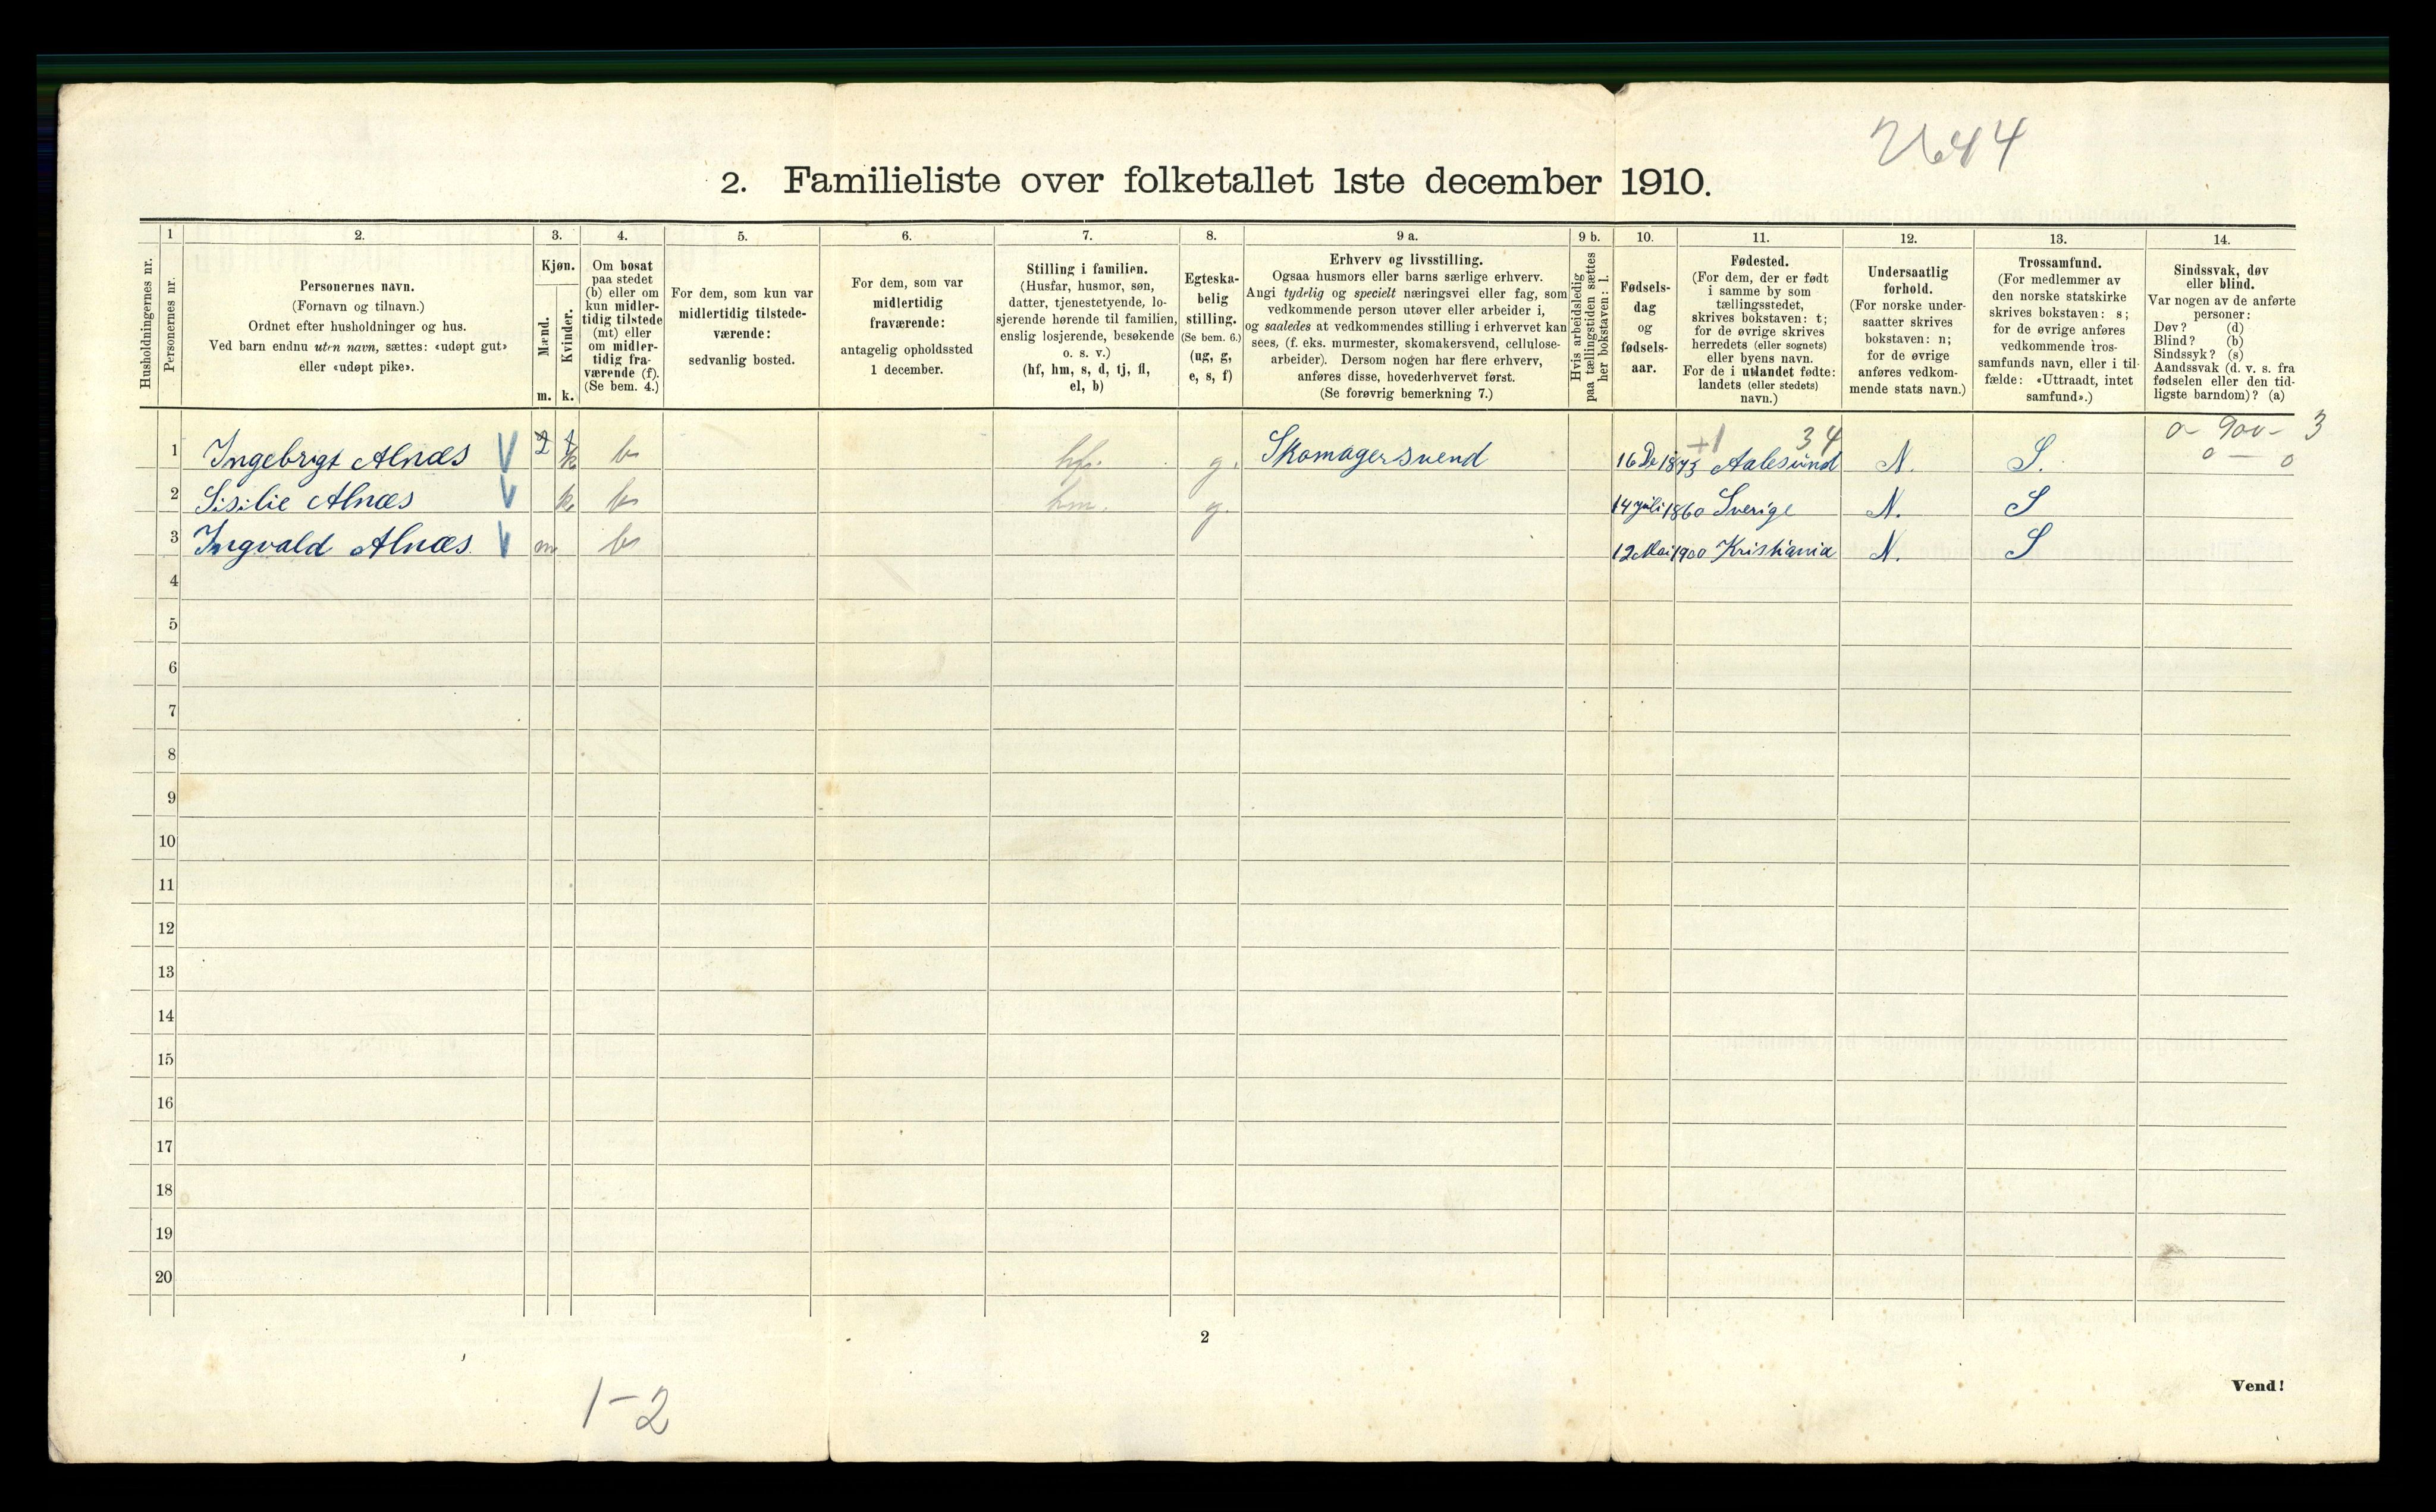 2644
2. Familieliste over folketallet 1ste december 1910.
Husholdningernes nr.
1
Personernes nr.
2.
Personernes navn.
(Fornavn og tilnavn.)
Ordnet efter husholdninger og hus.
Ved barn endnu uten navn, sættes: «udøpt gut»
eller «udøpt pike».
3.
Kjøn.
Mænd.
Kvinder.
m. k.
4.
Om bosat
paa stedet
(b) eller om
kun midler-
tidig tilstede
(mt) eller
om midler-
tidig fra-
værende (f).
(Se bem. 4.)
5.
For dem, som kun var
midlertidig tilstede-
værende:
sedvanlig bosted.
6.
For dem, som var
midlertidig
fraværende:
antagelig opholdssted
1 december.
7.
Stilling i familien.
(Husfar, husmor, søn,
datter, tjenestetyende, lo-
sjerende hørende til familien,
enslig losjerende, besøkende
o. s. v.)
(hf, hm, s, d, tj, fl,
el, b)
8.
Egteska-
belig
stilling.
(Se bem. 6.)
(ug, g,
e, s, f)
9 a.
Erhverv og livsstilling.
Ogsaa husmors eller barns særlige erhverv.
Angi tydelig og specielt næringsvei eller fag, som
vedkommende person utøver eller arbeider i,
og saaledes at vedkommendes stilling i erhvervet kan
sees, (f. eks. murmester, skomakersvend, cellulose-
arbeider). Dersom nogen har flere erhverv,
anføres disse, hovederhvervet først.
(Se forøvrig bemerkning 7.)
9 b.
Hvis arbeidsledig
paa tællingstiden sættes
her bokstaven: l.
10.
Fødsels-
dag
og
fødsels-
aar.
11.
Fødested.
(For dem, der er født
i samme by som
tællingsstedet,
skrives bokstaven: t;
for de øvrige skrives
herredets (eller sognets)
eller byens navn.
For de i utlandet fødte:
landets (eller stedets)
navn.)
12.
Undersaatlig
forhold.
(For norske under-
saatter skrives
bokstaven: n;
for de øvrige
anføres vedkom-
mende stats navn.)
13.
Trossamfund.
(For medlemmer av
den norske statskirke
skrives bokstaven: s;
for de øvrige anføres
vedkommende tros-
samfunds navn, eller i til-
fælde: «Uttraadt, intet
samfund».)
14.
Sindssvak, døv
eller blind.
Var nogen av de anførte
personer:
Døv? (d)
Blind? (b)
Sindssyk? (s)
Aandssvak (d. v. s. fra
fødselen eller den tid-
ligste barndom)? (a)
2 +1 34 0 - 900 - 3
0 — 0
1 Ingebrigt Alnæs V b hf. g. Skomagersvend 16 De 1843 Aalesund N. S.
2 Sisilie Alnæs V k b hm. g. 14 juli 1860 Sverige N. S
3 Ingvald Alnæs. V m b 12 Mai 1900 Kristiania N. S
4
5
6
7
8
9
10
11
12
13
14
15
16
17
18
19
20
2
Vend!
1-2